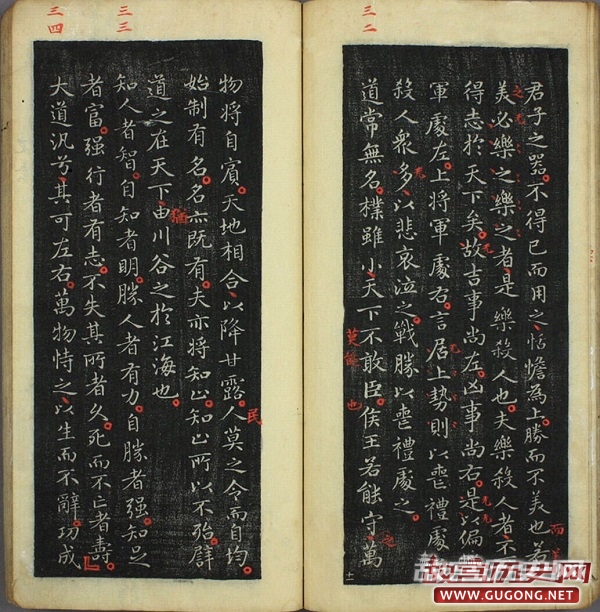 三二
君子之器不得已而用之恬憺為上勝而不美也若
美必樂之樂之者是樂殺人也夫樂殺人者不
得志於天下矣故吉事尚左凶事尚右是以偏
軍處左上將軍處右言居上勢則以喪禮處
殺人衆多以悲哀泣之戰勝以喪禮處之
道常無名樸雖小天下不敢臣侯王若能守萬
三三
物將自賓天地相合以降甘露人莫之令而自均
民
始制有名名亦既有夫亦將知止知止所以不殆譬
道之在天下由川谷之於江海也
猶
知人者智自知者明勝人者有力自勝者强知足
者富强行者有志不失其所者久死而不亡者壽
三四
大道汎兮其可左右萬物恃之以生而不辭功成
故宫历史网
WWW.GUGONG.NET